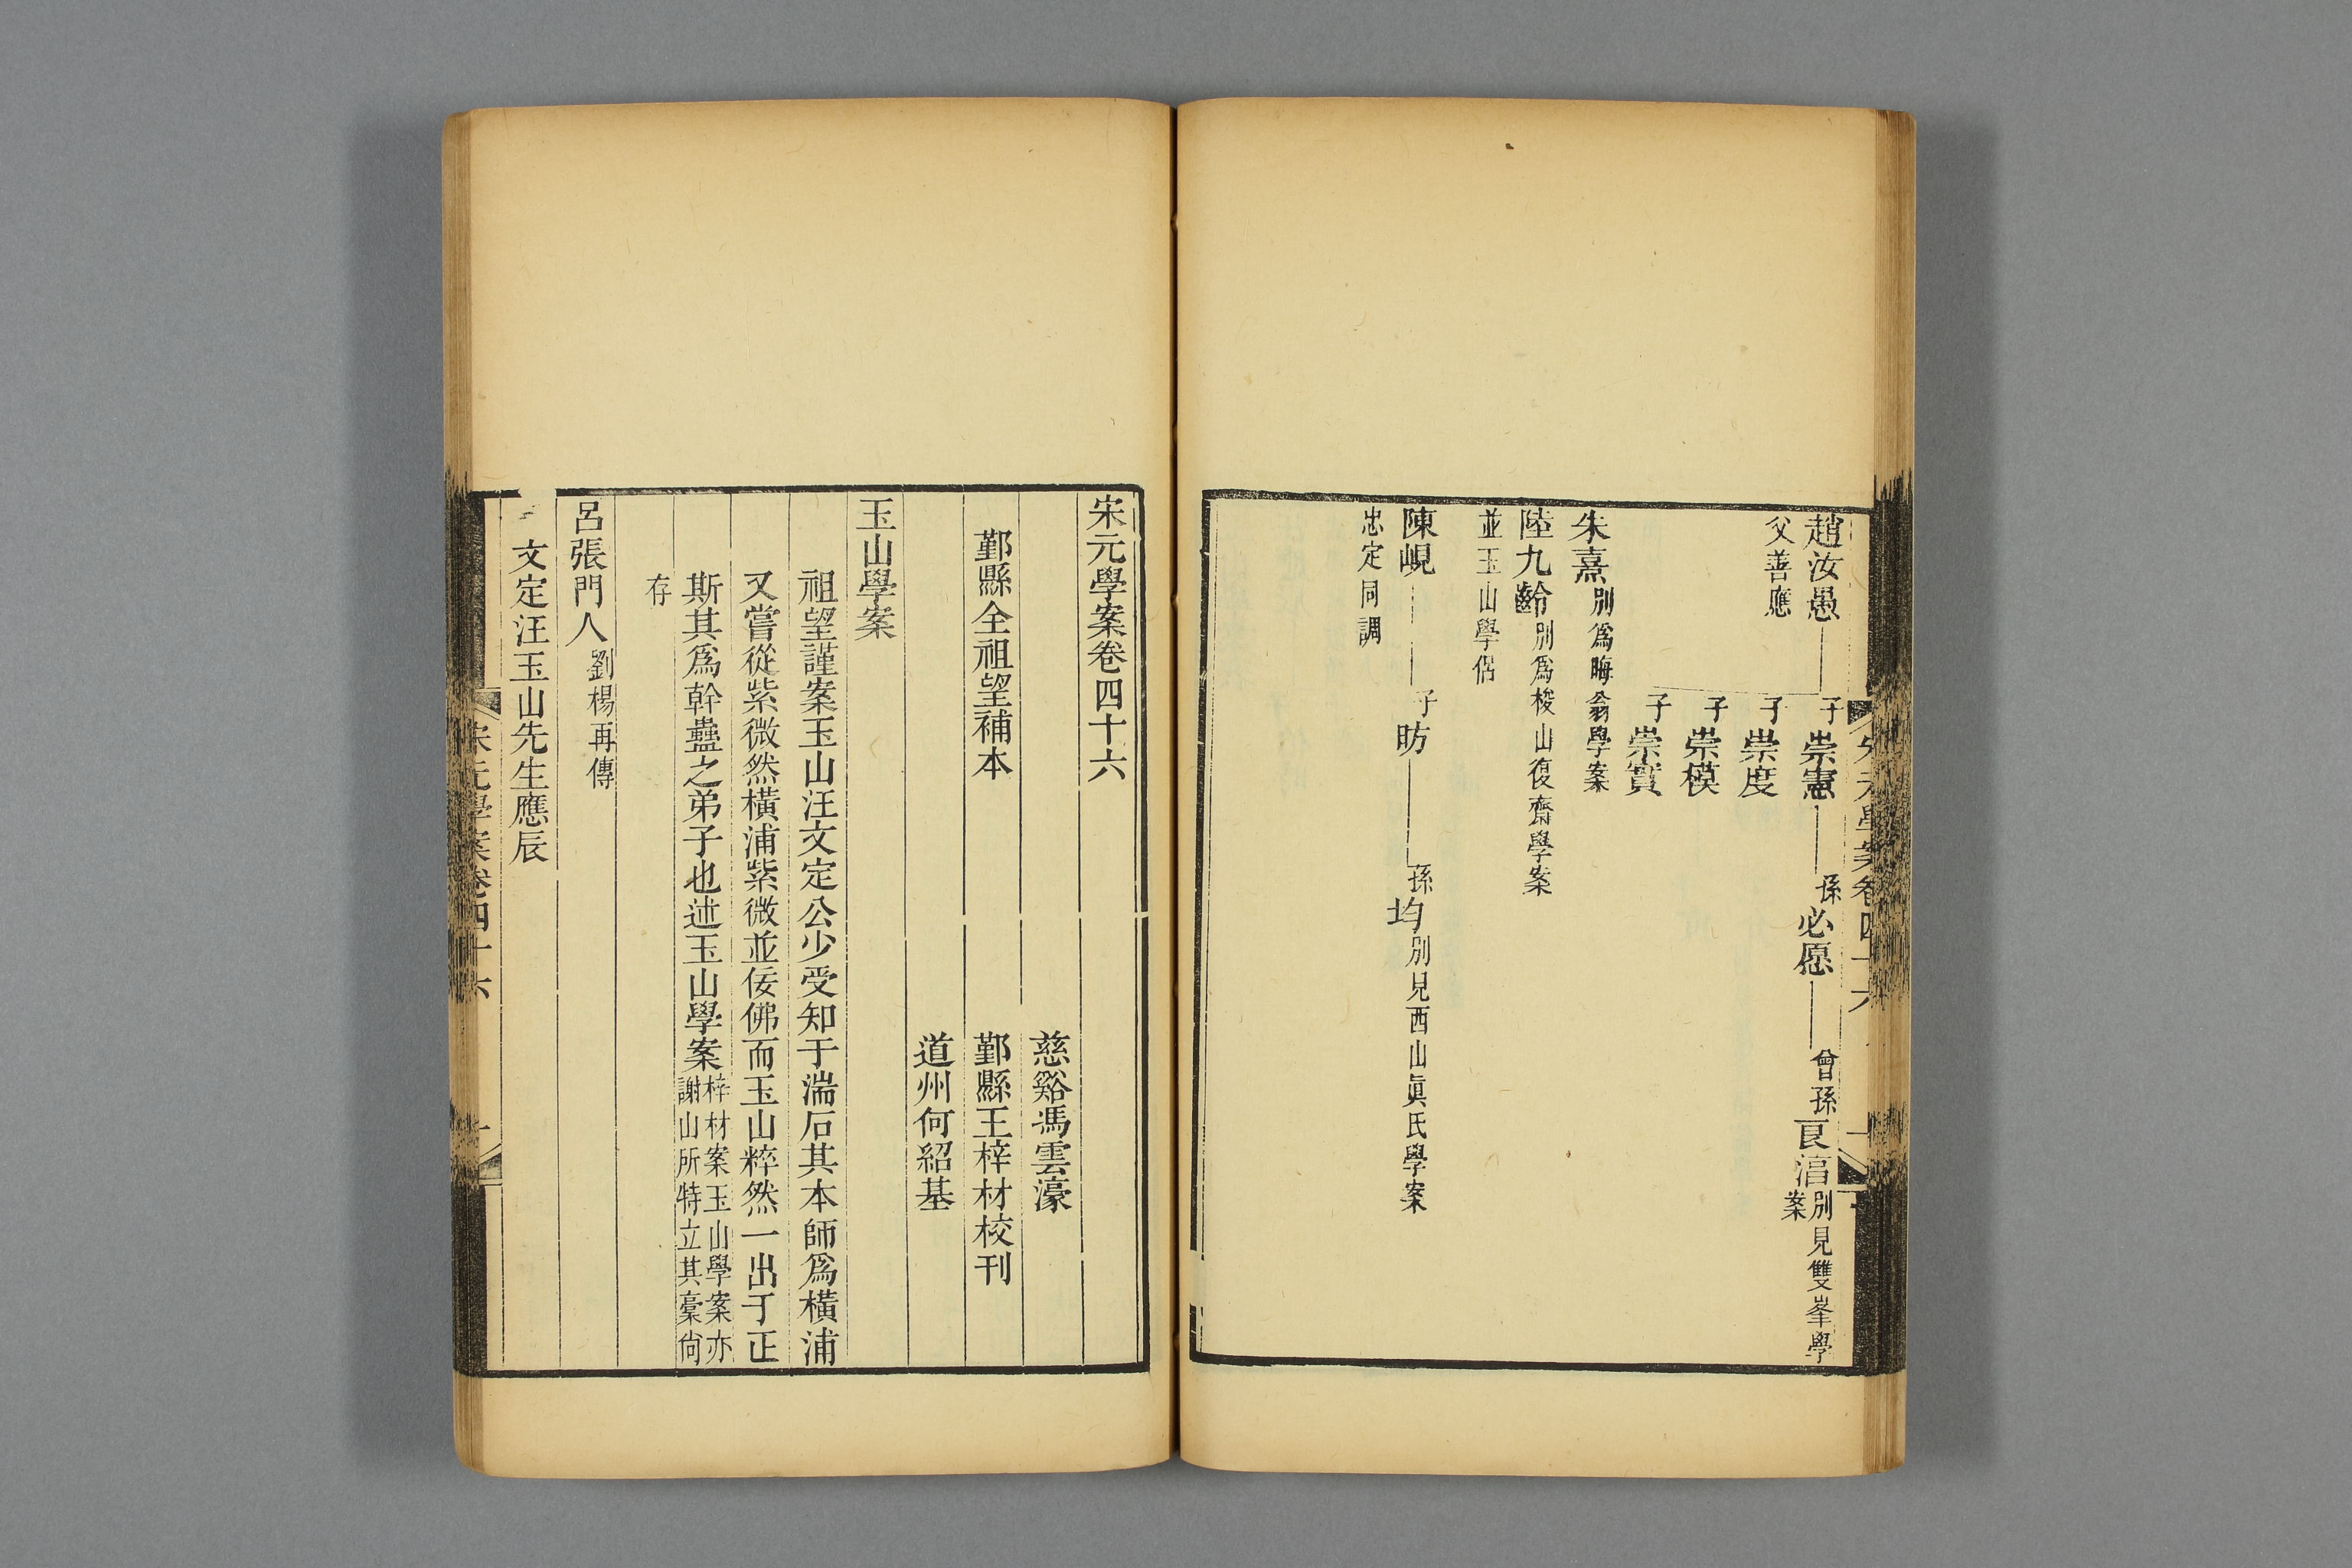 趙汝愚 子崇憲 孫必愿 曾孫良淳別見雙峯學案
父善應
子崇度
子崇模
子崇實
朱熹別爲晦翁學案
陸九齡別爲梭山復齋學案
並玉山學侶
陳峴 子昉 孫均別見西山眞氏學案
忠定同調
宋元學案卷四十六
慈谿馮雲濠
鄞縣全祖望補本 鄞縣王梓材校刊
道州何紹基
玉山學案
祖望謹案玉山汪文定公少受知于湍石其本師爲橫浦
又嘗從紫微然橫浦紫微並佞佛而玉山粹然一出于正
斯其爲幹蠱之弟子也述玉山學案梓材案玉山學案亦
謝山所特立其稾尙
存
呂張門人劉楊再傳
文定汪玉山先生應辰
宋元學案卷四十六